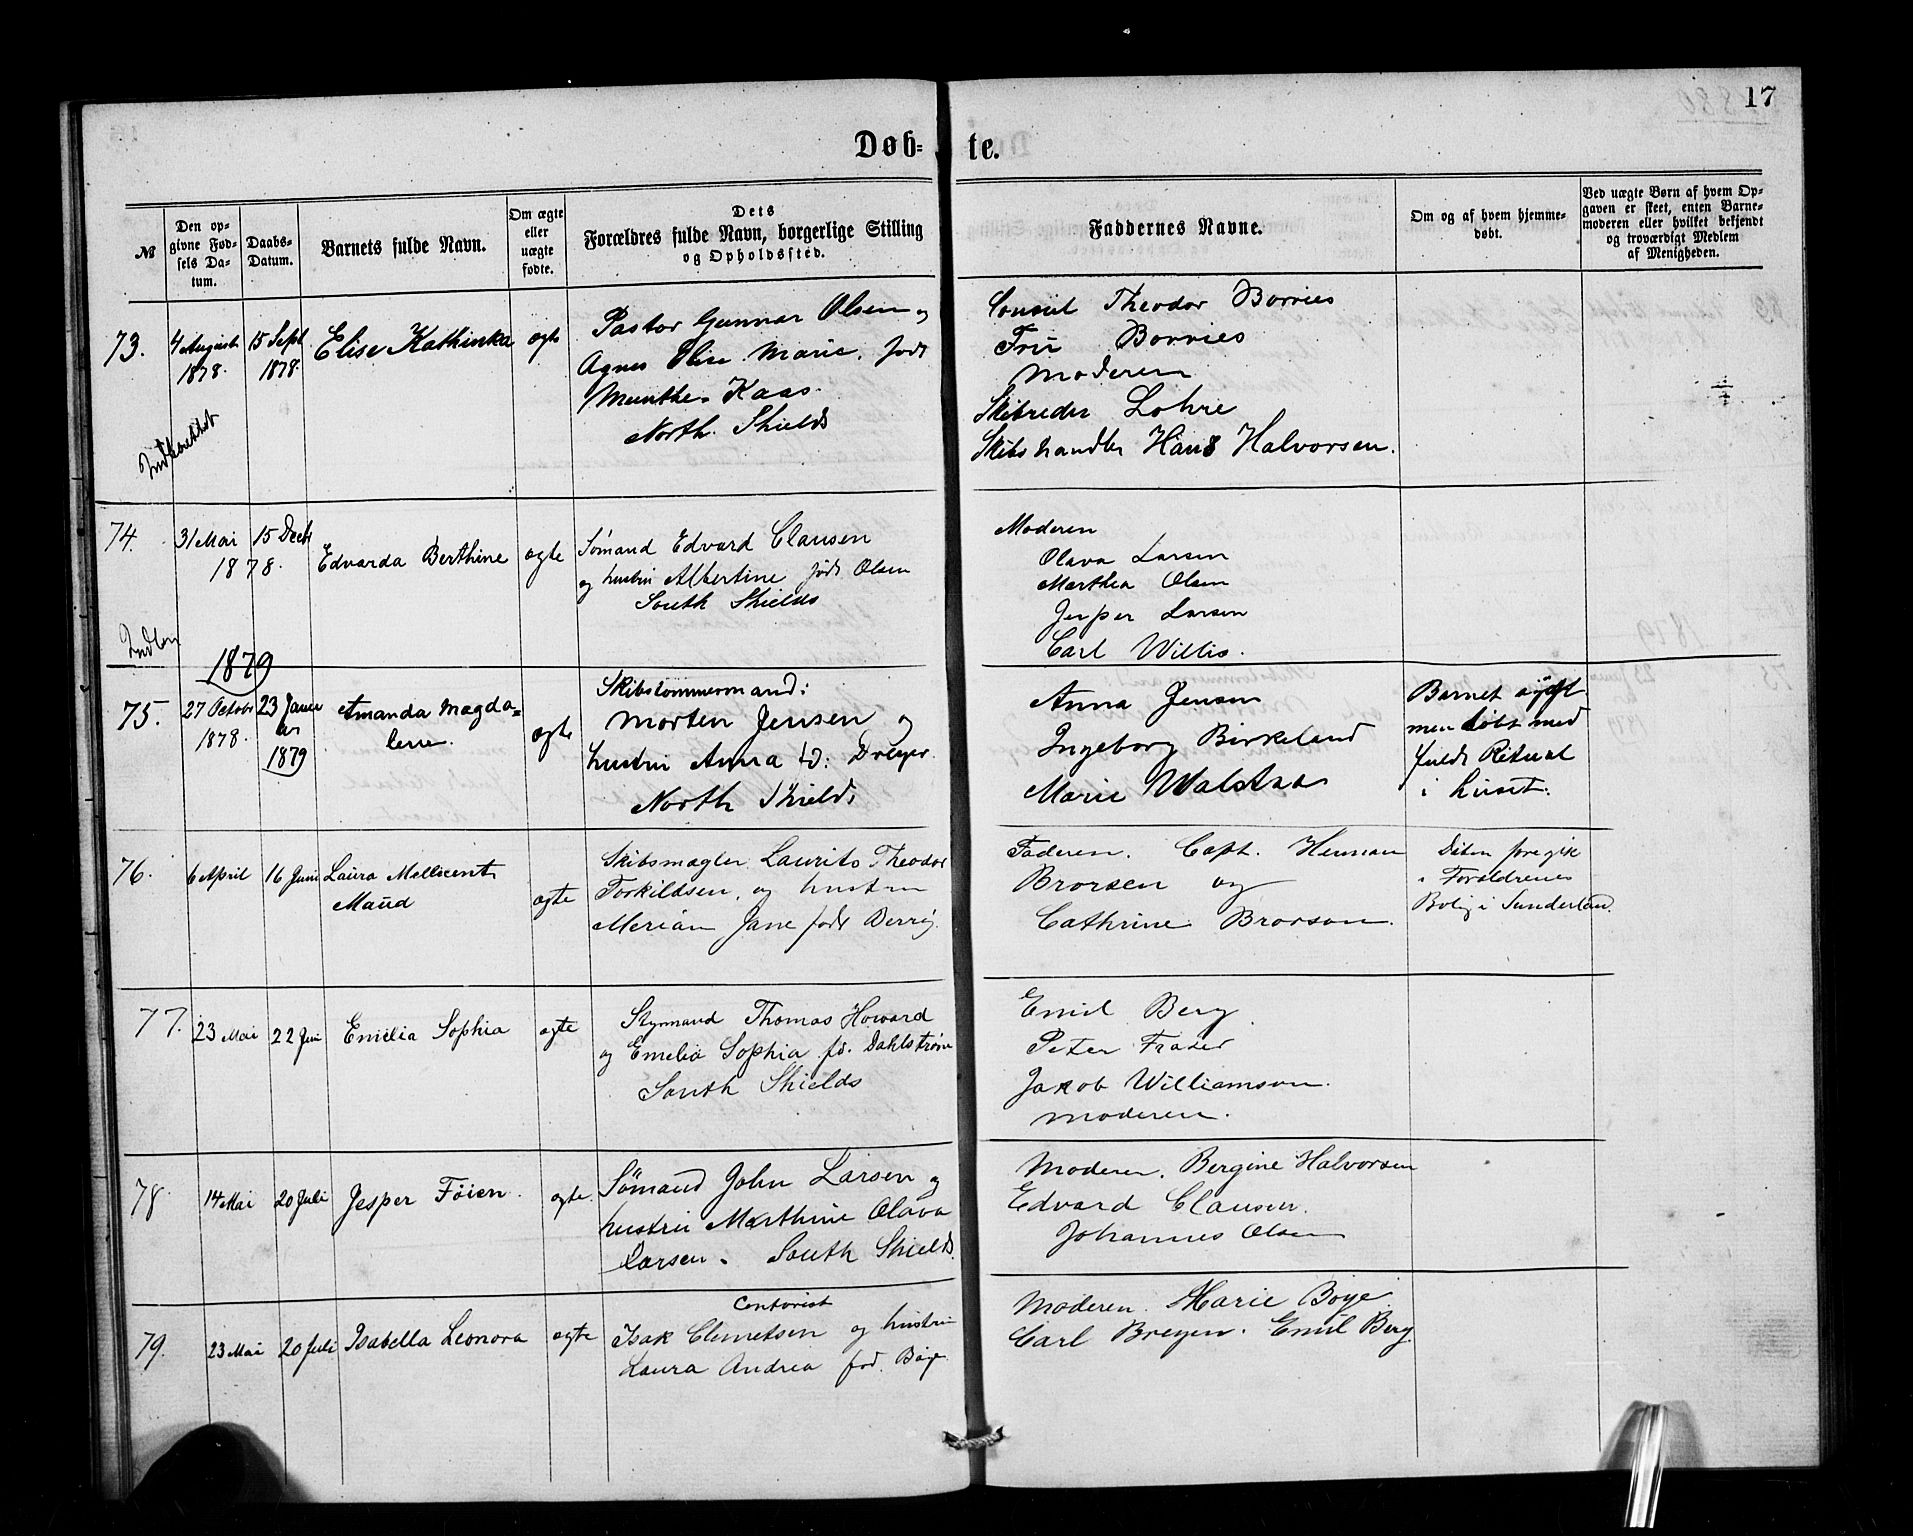 17
Døb- te.
№
Den op-
givne Fød-
sels Da-
tum.
Daabs-
Datum.
Barnets fulde Navn.
Om ægte
eller
uægte
fødte.
Dets
Forældres fulde Navn, borgerlige Stilling
og Opholdssted.
Faddernes Navne.
Om og af hvem hjemme-
døbt.
Ved uægte Børn af hvem Op-
gaven er skeet, enten Barne-
moderen eller hvilket bekjendt
og troværdigt Medlem
af Menigheden.
73.
4 August
1878.
15 Sept
1878.
Elise Kathinka
ægte
Pastor Gunnar Olsen og
Agnes Elise Marie. født
Munthe Kaas.
North. Shields
Consul Theodor Borries
Fru Borries
Moderen
Skibreder Lohre
Skibshandler Hans Halvorsen.
74.
31 Mai
1878.
15 Decbr
Edvarda Berthine
ægte
Sømand Edvard Clausen
og hustru Albertine født Olsen
South Shields
Moderen
Olava Larsen
Marthea Olsen
Jesper Larsen
Carl Willis.
1879
75.
27 Octobr
1878.
23 Januar
1879
Amanda Magda=
lene.
ægte
Skibstømmermand:
Morten Jensen og
hustru Anna fd: Dreyer.
North Shields
Anna Jensen
Ingeborg Birkeland
Marie Walstad
Barnet sygt
men døbt med
fuldt Ritual
i huset.
76.
6 April
16 Juni
Laura Mellicent
Maud
ægte
Skibsmægler Laurits Theodor
Torkildsen, og hustru
Merian Jane født Berry.
Faderen. Capt. Herman
Brorsen og
Cathrine Brorson.
Daaben foregik
i Forældrenes
Bolig i Sunderland.
77.
23 Mai
22 Juni
Emelia Sophia
ægte
Styrmand Thomas Howard
og Emelia Sophia fd. Dahlstrøm
South Shields
Emil Berg.
Peter Fraser
Jakob Williamson.
Moderen.
78.
14 Mai
20 Juli
Jesper Føien.
ægte.
Sømand John Larsen og
hustru Marthine Olava
Larsen. South Shields.
Moderen. Bergine Halvorsen
Edvard Clausen.
Johannes Olsen
79.
23 Mai
20 Juli
Isabella Leonora
ægte
Contorist
Isak Clemetsen og hustru
Laura Andrea fød. Bøye.
Moderen. Marie Boye.
Carl Breyen. Emil Berg.